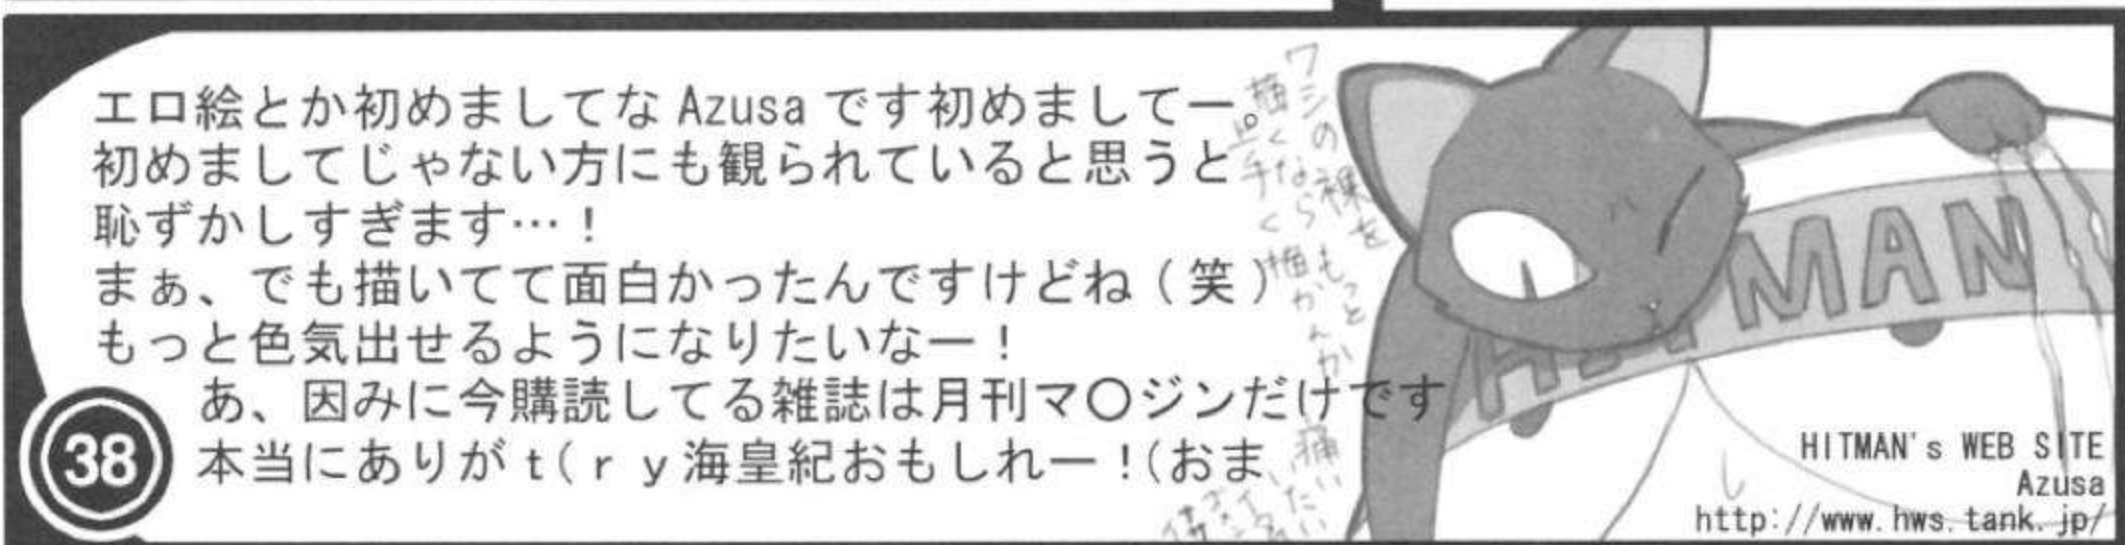 エロ絵とか初めましてな Azusa です初めましてー。
初めましてじゃない方にも観られていると思うと
恥ずかしすぎます…！
まぁ、でも描いてて面白かったんですけどね（笑）
もっと色気出せるようになりたいなー！
あ、因みに今購読してる雑誌は月刊マ〇ジンだけです
本当にありがｔ(ｒｙ海皇紀おもしれー！(おま
38
ワシの裸を
描くなら もっと
上手く描かんか
HITMAN
HITMAN's WEB SITE
Azusa
http://www.hws.tank.jp/